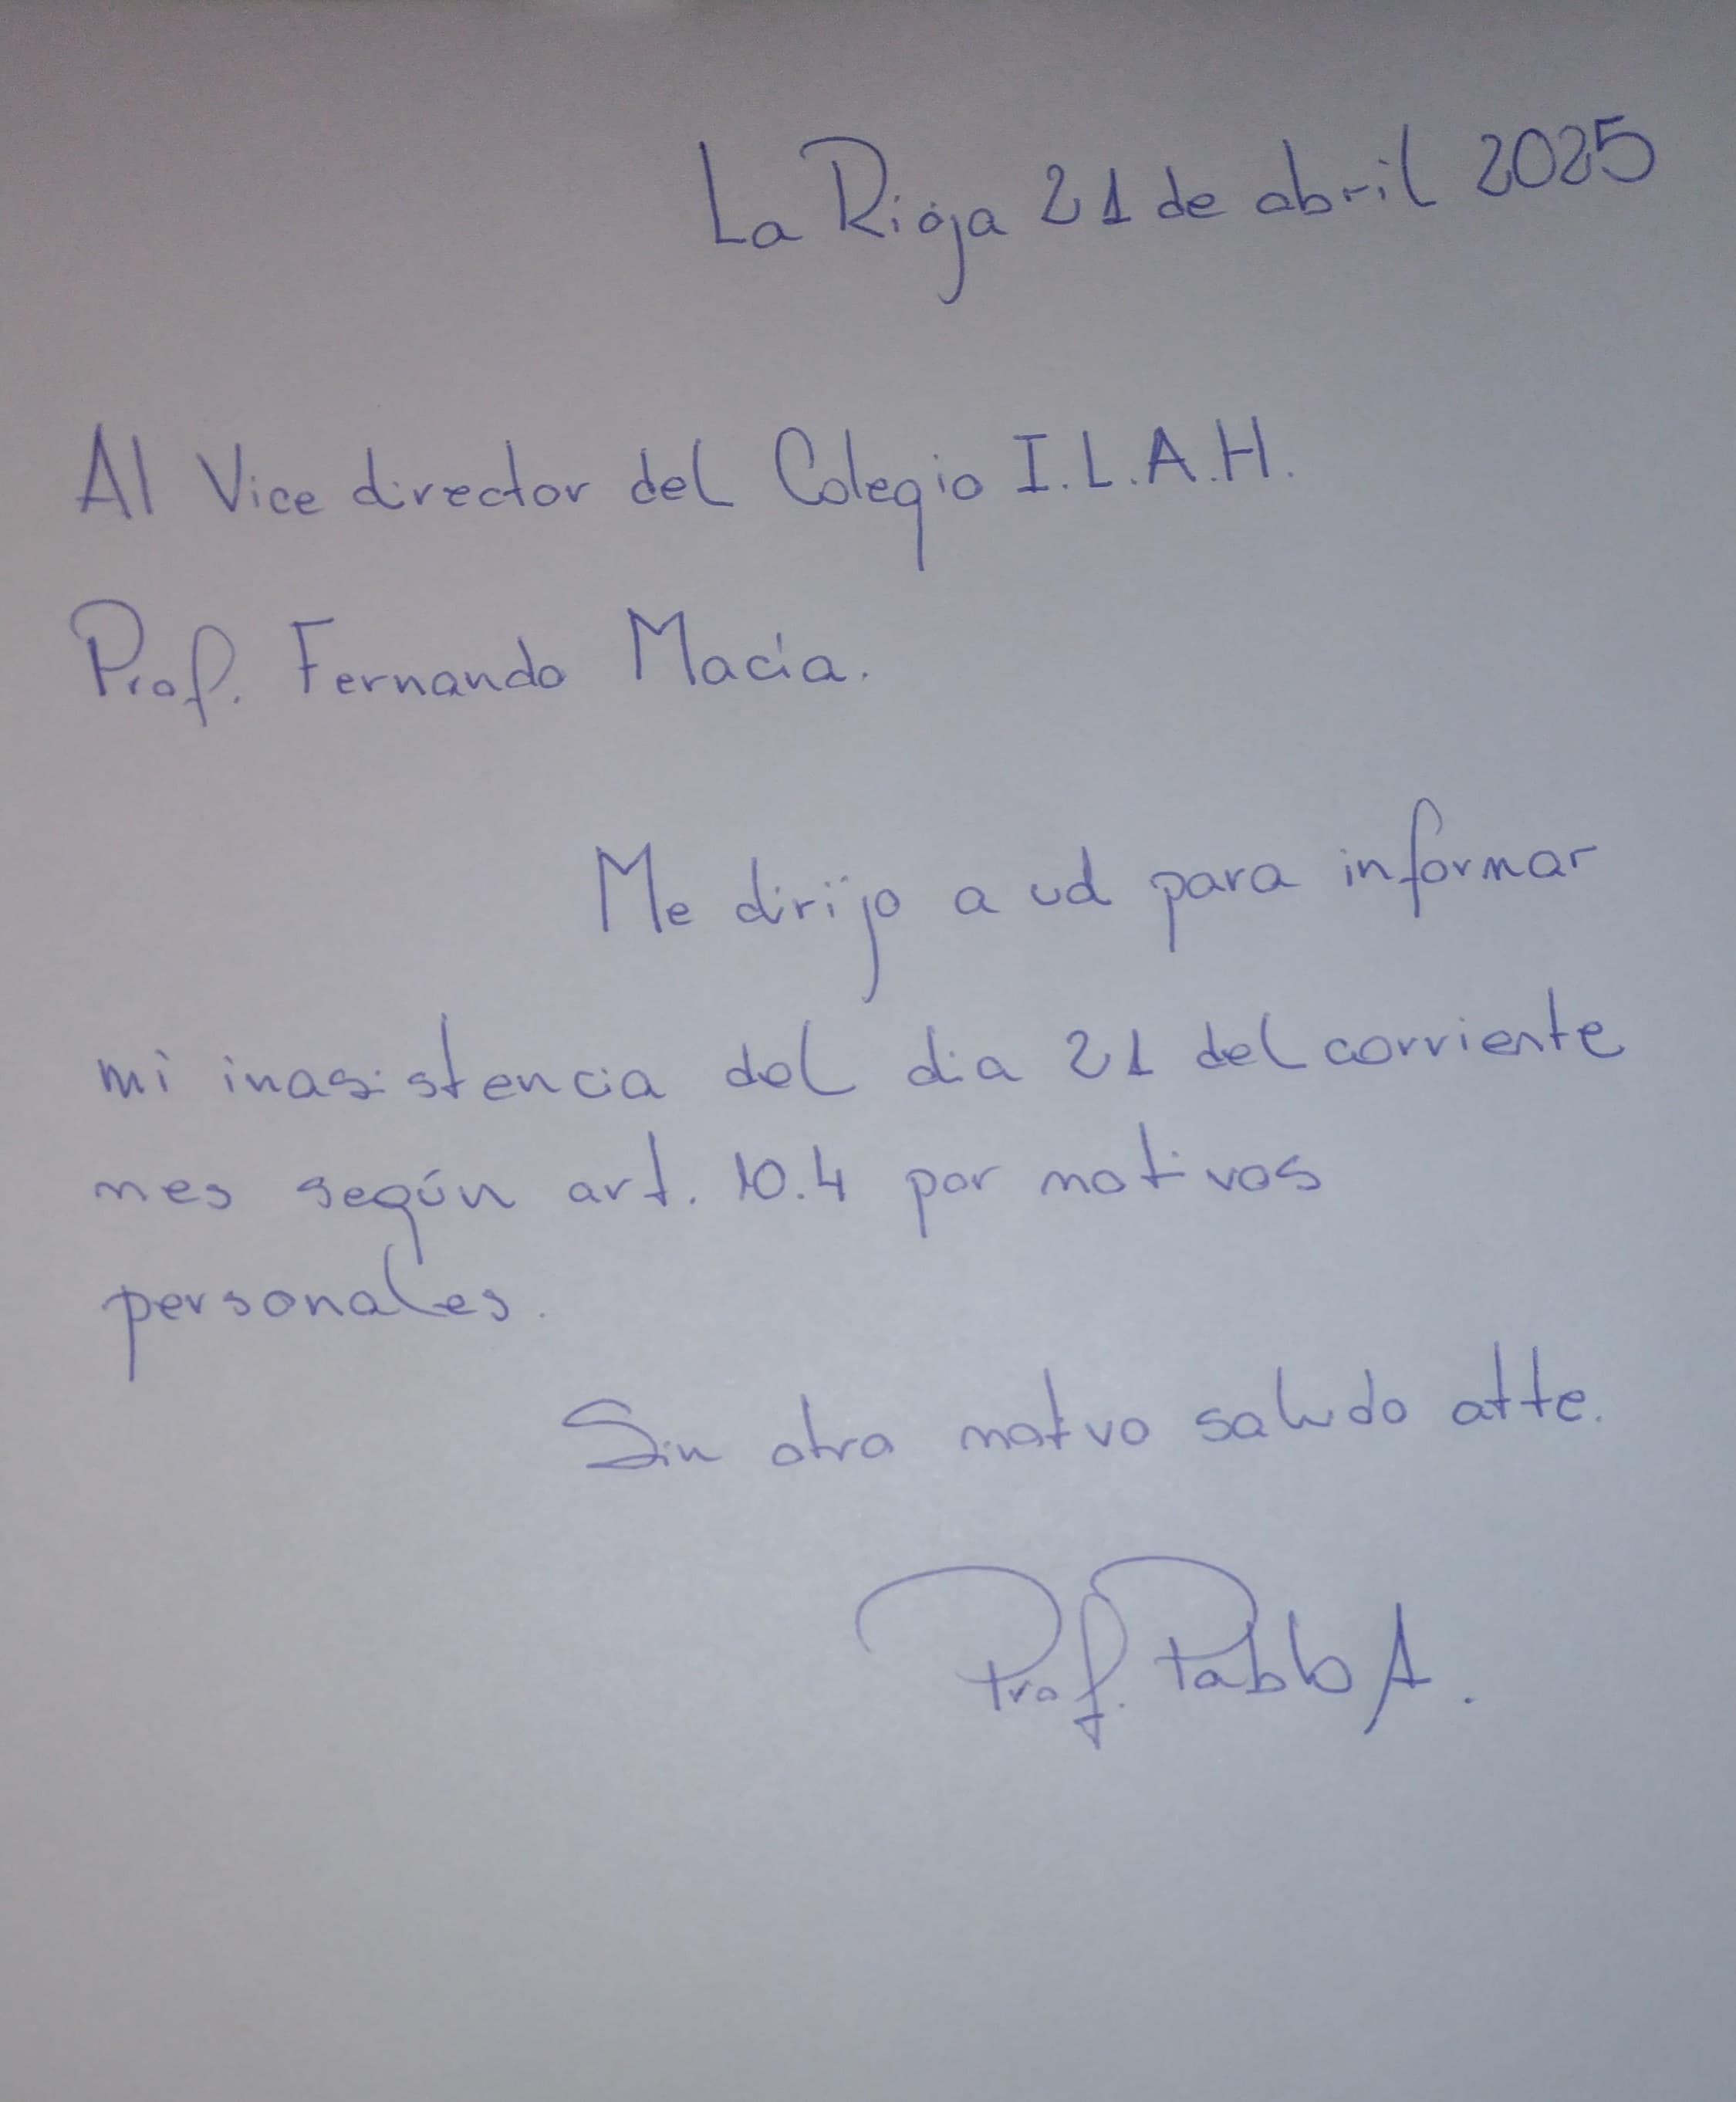 La Rioja 21 de abril 2025
Al Vice director del Colegio I.L.A.H.
Prof. Fernando Macia.
Me dirijo a ud para informar
mi inasistencia del dia 21 del corriente
mes según art. 10.4 por motivos
personales.
Sin otro motivo saludo atte.
Prof. Pablo A.